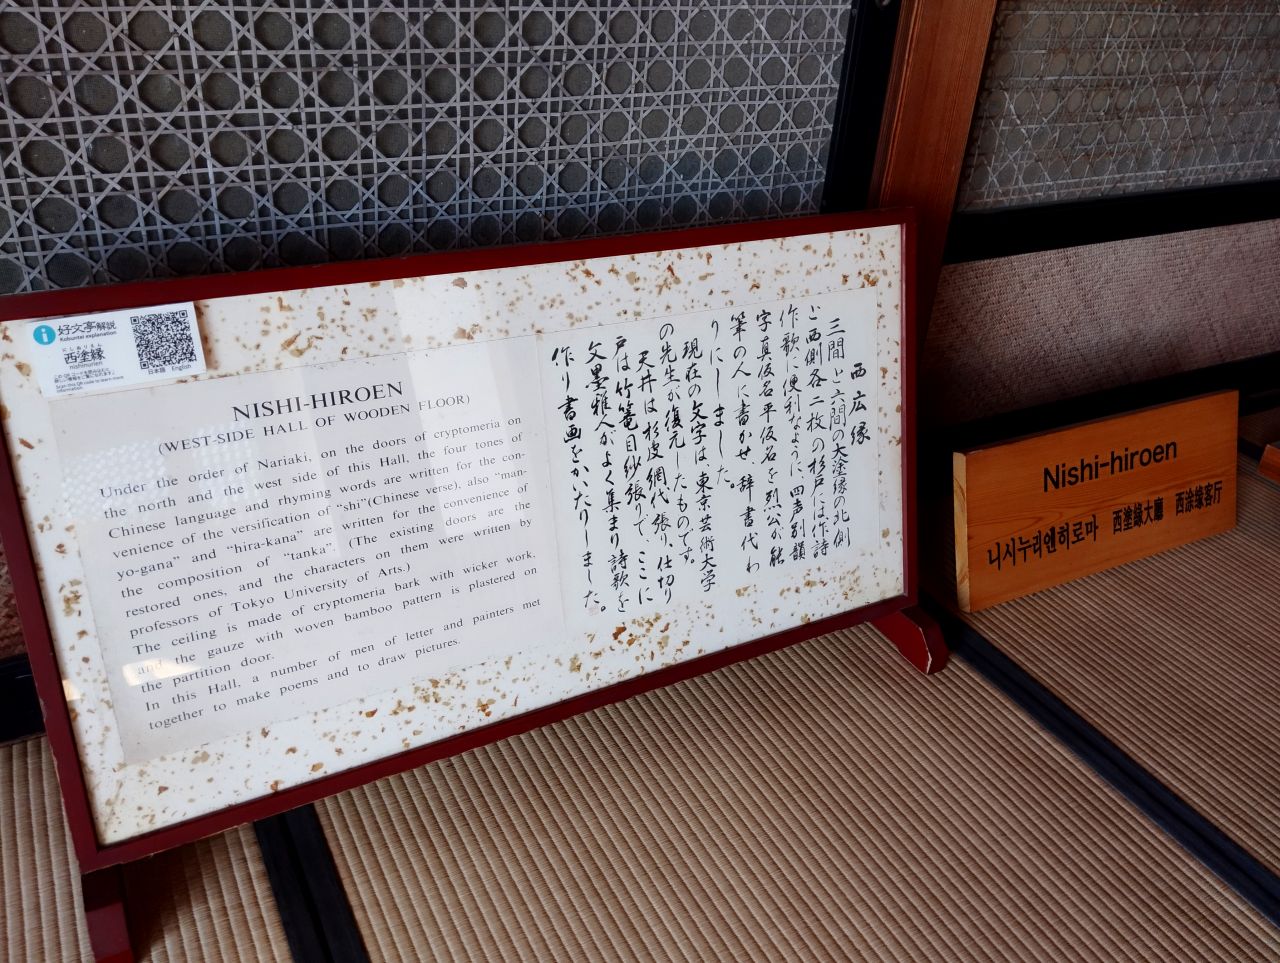 好文亭解説
Kobuntei explanation
にしぬりえん
西塗縁
nishinurien
このQRコードを読み込むと、
詳しい情報をご覧になれます。
Scan this QR code to learn more
information.
日本語 English
NISHI-HIROEN
(WEST-SIDE HALL OF WOODEN FLOOR)
Under the order of Nariaki, on the doors of cryptomeria on
the north and the west side of this Hall, the four tones of
Chinese language and rhyming words are written for the con-
venience of the versification of "shi"(Chinese verse), also "man-
yo-gana" and "hira-kana" are written for the convenience of
the composition of "tanka". (The existing doors are the
restored ones, and the characters on them were written by
professors of Tokyo University of Arts.)
The ceiling is made of cryptomeria bark with wicker work,
and the gauze with woven bamboo pattern is plastered on
the partition door.
In this Hall, a number of men of letter and painters met
together to make poems and to draw pictures.
西広縁
三間と六間の大塗縁の北側
と西側各二枚の杉戸には作詩
作歌に便利なように四声別韻
字真仮名平仮名を烈公が能
筆の人に書かせ、辞書代わ
りにしました。
現在の文字は東京芸術大学
の先生が復元したものです。
天井は杉皮網代張り、仕切り
戸は竹篭目紗張りで、ここに
文墨雅人がよく集まり詩歌を
作り書画をかいたりしました。
Nishi-hiroen
니시누리엔히로마 西塗緣大廳 西涂缘客厅